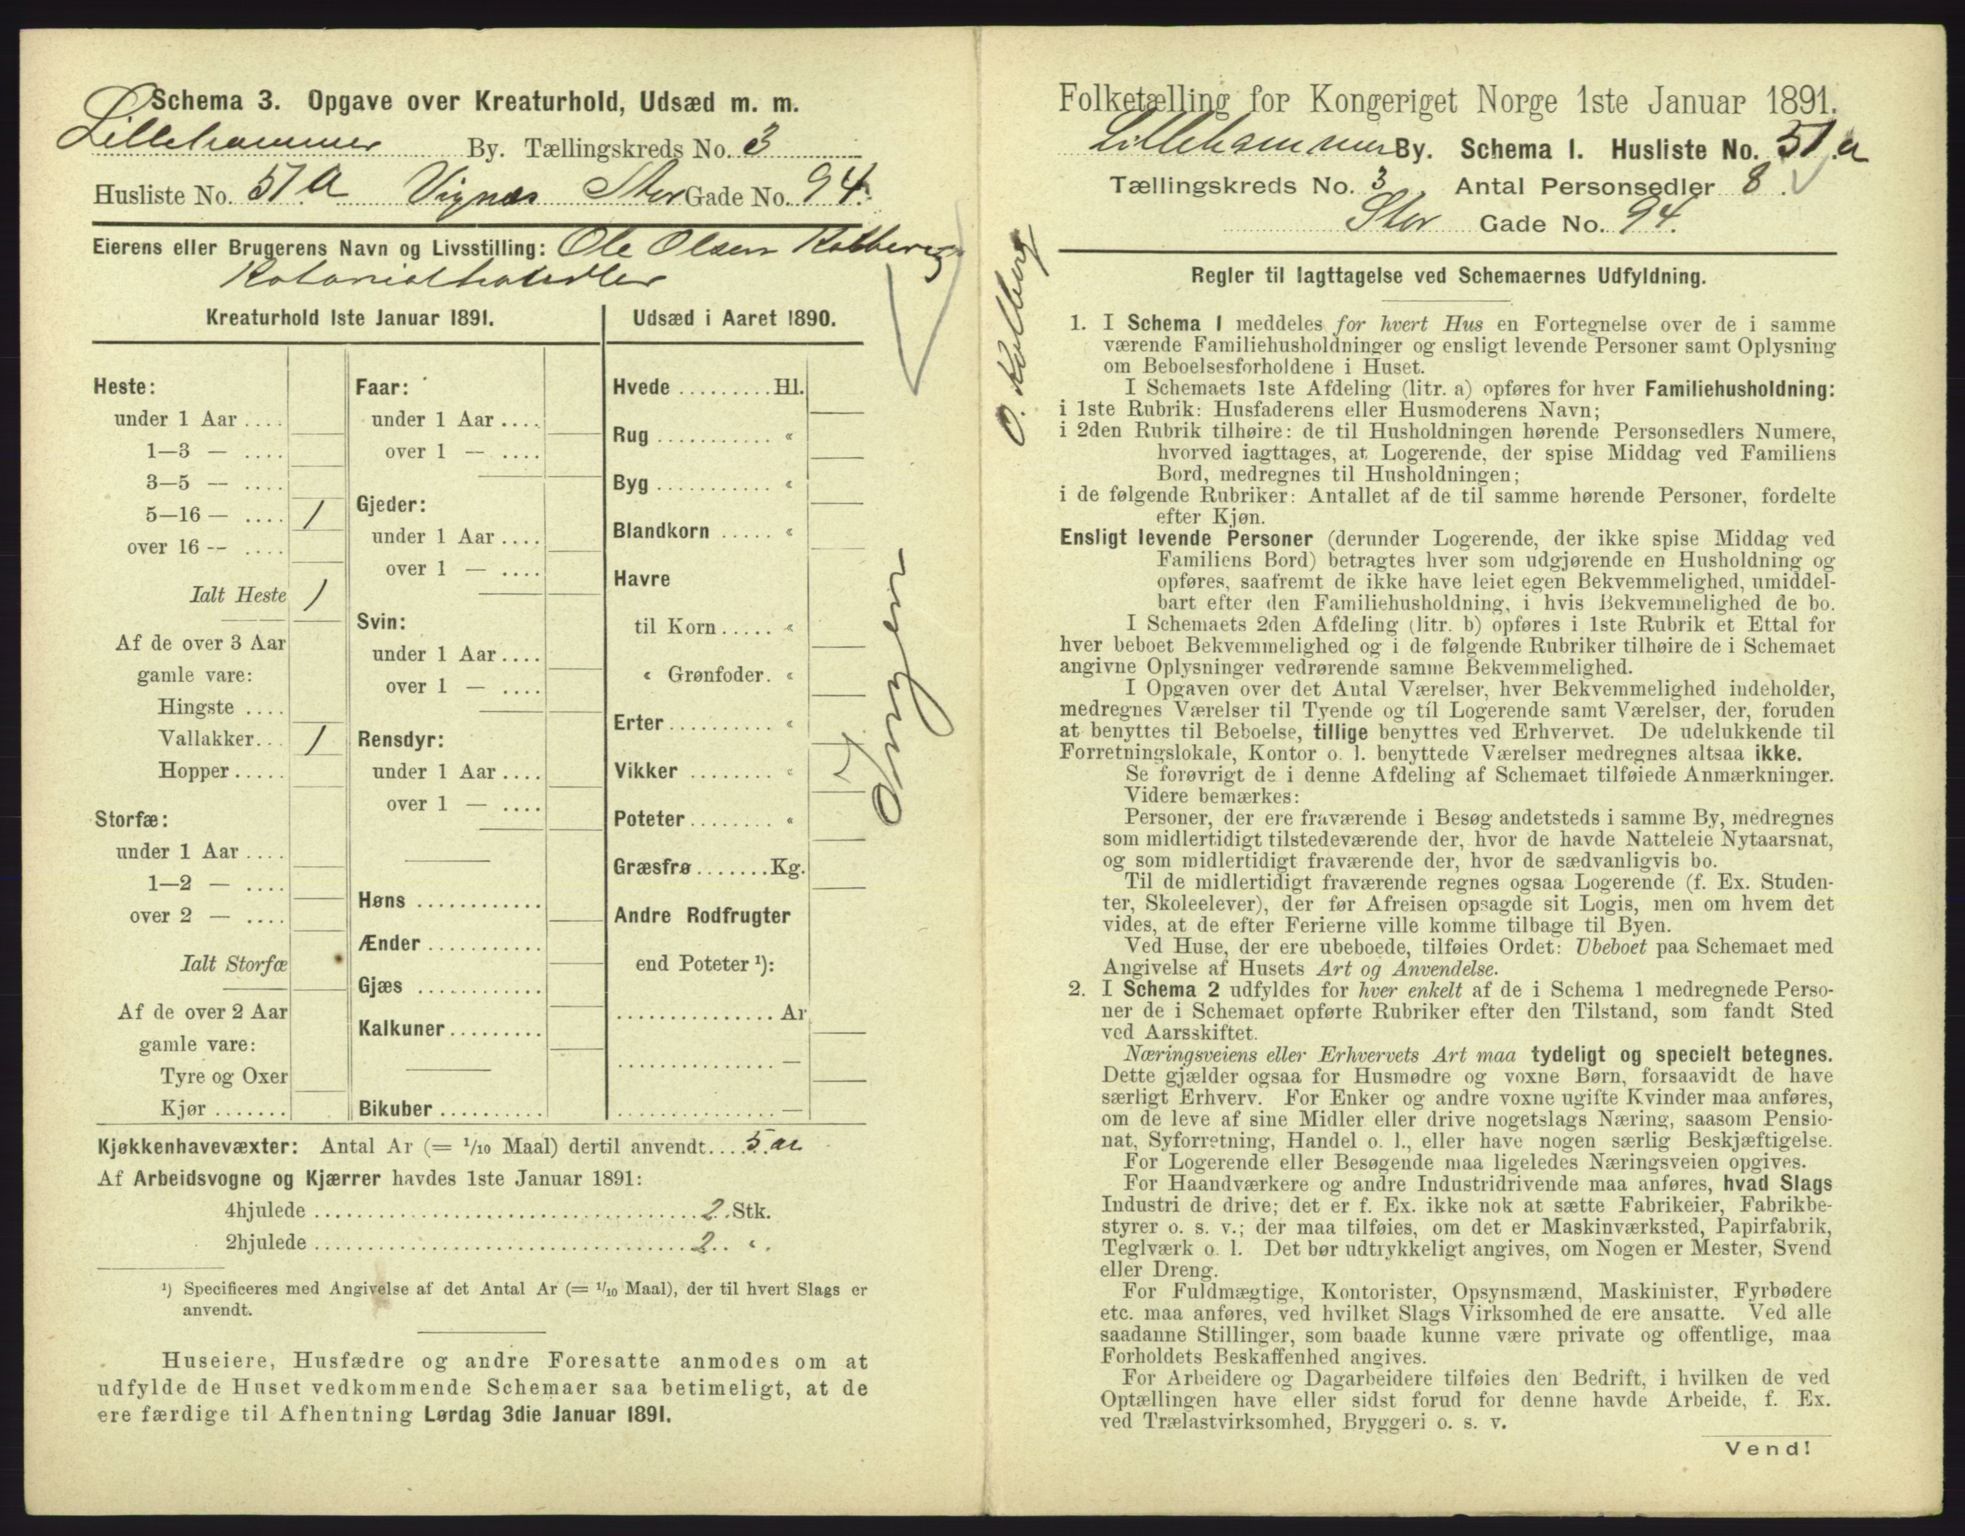 Schema 3. Opgave over Kreaturhold, Udsæd m. m.
Lillehammer By. Tællingskreds No. 3
Husliste No. 51 a Vignes Stor Gade No. 94.
Eierens eller Brugerens Navn og Livsstilling: Ole Olsen Kolberg
Kolonialhandler
Kreaturhold 1ste Januar 1891.
Heste:
under 1 Aar ....
1—3 — ....
3—5 — ....
5—16 — .... 1
over 16 — ....
Ialt Heste 1
Af de over 3 Aar
gamle vare:
Hingste ....
Vallakker... 1
Hopper.....
Storfæ:
under 1 Aar ....
1—2 — ....
over 2 — ....
Ialt Storfæ
Af de over 2 Aar
gamle vare:
Tyre og Oxer
Kjør .......
Faar:
under 1 Aar ....
over 1 — ....
Gjeder:
under 1 Aar ....
over 1 — ....
Svin:
under 1 Aar ....
over 1 — ....
Rensdyr:
under 1 Aar ....
over 1 — ....
Høns ............
Ænder ...........
Gjæs ............
Kalkuner.........
Bikuber ..........
Udsæd i Aaret 1890.
Hvede .........Hl.
Rug ........... «
Byg ........... «
Blandkorn ..... «
Havre
til Korn..... «
« Grønfoder. «
Erter.......... «
Vikker ........ «
Poteter........ «
Græsfrø .......Kg.
Andre Rodfrugter
end Poteter ¹):
............... Ar
............... —
............... —
Ingen
Kjøkkenhavevæxter: Antal Ar (= 1/10 Maal) dertil anvendt.... 5 ar
Af Arbeidsvogne og Kjærrer havdes 1ste Januar 1891:
4hjulede .................................. 2 Stk.
2hjulede .................................. 2 «
¹) Specificeres med Angivelse af det Antal Ar (= 1/10 Maal), der til hvert Slags er
anvendt.
Huseiere, Husfædre og andre Foresatte anmodes om at
udfylde de Huset vedkommende Schemaer saa betimeligt, at de
ere færdige til Afhentning Lørdag 3die Januar 1891.
O. Kolberg
Folketælling for Kongeriget Norge 1ste Januar 1891.
Lillehammer By. Schema I. Husliste No. 51 a
Tællingskreds No. 3 Antal Personsedler 8
Stor Gade No. 94.
Regler til Iagttagelse ved Schemaernes Udfyldning.
1. I Schema 1 meddeles for hvert Hus en Fortegnelse over de i samme
værende Familiehusholdninger og ensligt levende Personer samt Oplysning
om Beboelsesforholdene i Huset.
I Schemaets 1ste Afdeling (litr. a) opføres for hver Familiehusholdning:
i 1ste Rubrik: Husfaderens eller Husmoderens Navn;
i 2den Rubrik tilhøire: de til Husholdningen hørende Personsedlers Numere,
hvorved iagttages, at Logerende, der spise Middag ved Familiens
Bord, medregnes til Husholdningen;
i de følgende Rubriker: Antallet af de til samme hørende Personer, fordelte
efter Kjøn.
Ensligt levende Personer (derunder Logerende, der ikke spise Middag ved
Familiens Bord) betragtes hver som udgjørende en Husholdning og
opføres, saafremt de ikke have leiet egen Bekvemmelighed, umiddel-
bart efter den Familiehusholdning, i hvis Bekvemmelighed de bo.
I Schemaets 2den Afdeling (litr. b) opføres i 1ste Rubrik et Ettal for
hver beboet Bekvemmelighed og i de følgende Rubriker tilhøire de i Schemaet
angivne Oplysninger vedrørende samme Bekvemmelighed.
I Opgaven over det Antal Værelser, hver Bekvemmelighed indeholder,
medregnes Værelser til Tyende og til Logerende samt Værelser, der, foruden
at benyttes til Beboelse, tillige benyttes ved Erhvervet. De udelukkende til
Forretningslokale, Kontor o. l. benyttede Værelser medregnes altsaa ikke.
Se forøvrigt de i denne Afdeling af Schemaet tilføiede Anmærkninger.
Videre bemærkes:
Personer, der ere fraværende i Besøg andetsteds i samme By, medregnes
som midlertidigt tilstedeværende der, hvor de havde Natteleie Nytaarsnat,
og som midlertidigt fraværende der, hvor de sædvanligvis bo.
Til de midlertidigt fraværende regnes ogsaa Logerende (f. Ex. Studen-
ter, Skoleelever), der før Afreisen opsagde sit Logis, men om hvem det
vides, at de efter Ferierne ville komme tilbage til Byen.
Ved Huse, der ere ubeboede, tilføies Ordet: Ubeboet paa Schemaet med
Angivelse af Husets Art og Anvendelse.
2. I Schema 2 udfyldes for hver enkelt af de i Schema 1 medregnede Perso-
ner de i Schemaet opførte Rubriker efter den Tilstand, som fandt Sted
ved Aarsskiftet.
Næringsveiens eller Erhvervets Art maa tydeligt og specielt betegnes.
Dette gjælder ogsaa for Husmødre og voxne Børn, forsaavidt de have
særligt Erhverv. For Enker og andre voxne ugifte Kvinder maa anføres,
om de leve af sine Midler eller drive nogetslags Næring, saasom Pensio-
nat, Syforretning, Handel o. l., eller have nogen særlig Beskjæftigelse.
For Logerende eller Besøgende maa ligeledes Næringsveien opgives.
For Haandværkere og andre Industridrivende maa anføres, hvad Slags
Industri de drive; det er f. Ex. ikke nok at sætte Fabrikeier, Fabrikbe-
styrer o. s. v.; der maa tilføies, om det er Maskinværksted, Papirfabrik,
Teglværk o. l. Det bør udtrykkeligt angives, om Nogen er Mester, Svend
eller Dreng.
For Fuldmægtige, Kontorister, Opsynsmænd, Maskinister, Fyrbødere
etc. maa anføres, ved hvilket Slags Virksomhed de ere ansatte. Ved alle
saadanne Stillinger, som baade kunne være private og offentlige, maa
Forholdets Beskaffenhed angives.
For Arbeidere og Dagarbeidere tilføies den Bedrift, i hvilken de ved
Optællingen have eller sidst forud for denne havde Arbeide, f. Ex.
ved Trælastvirksomhed, Bryggeri o. s. v.
Vend!